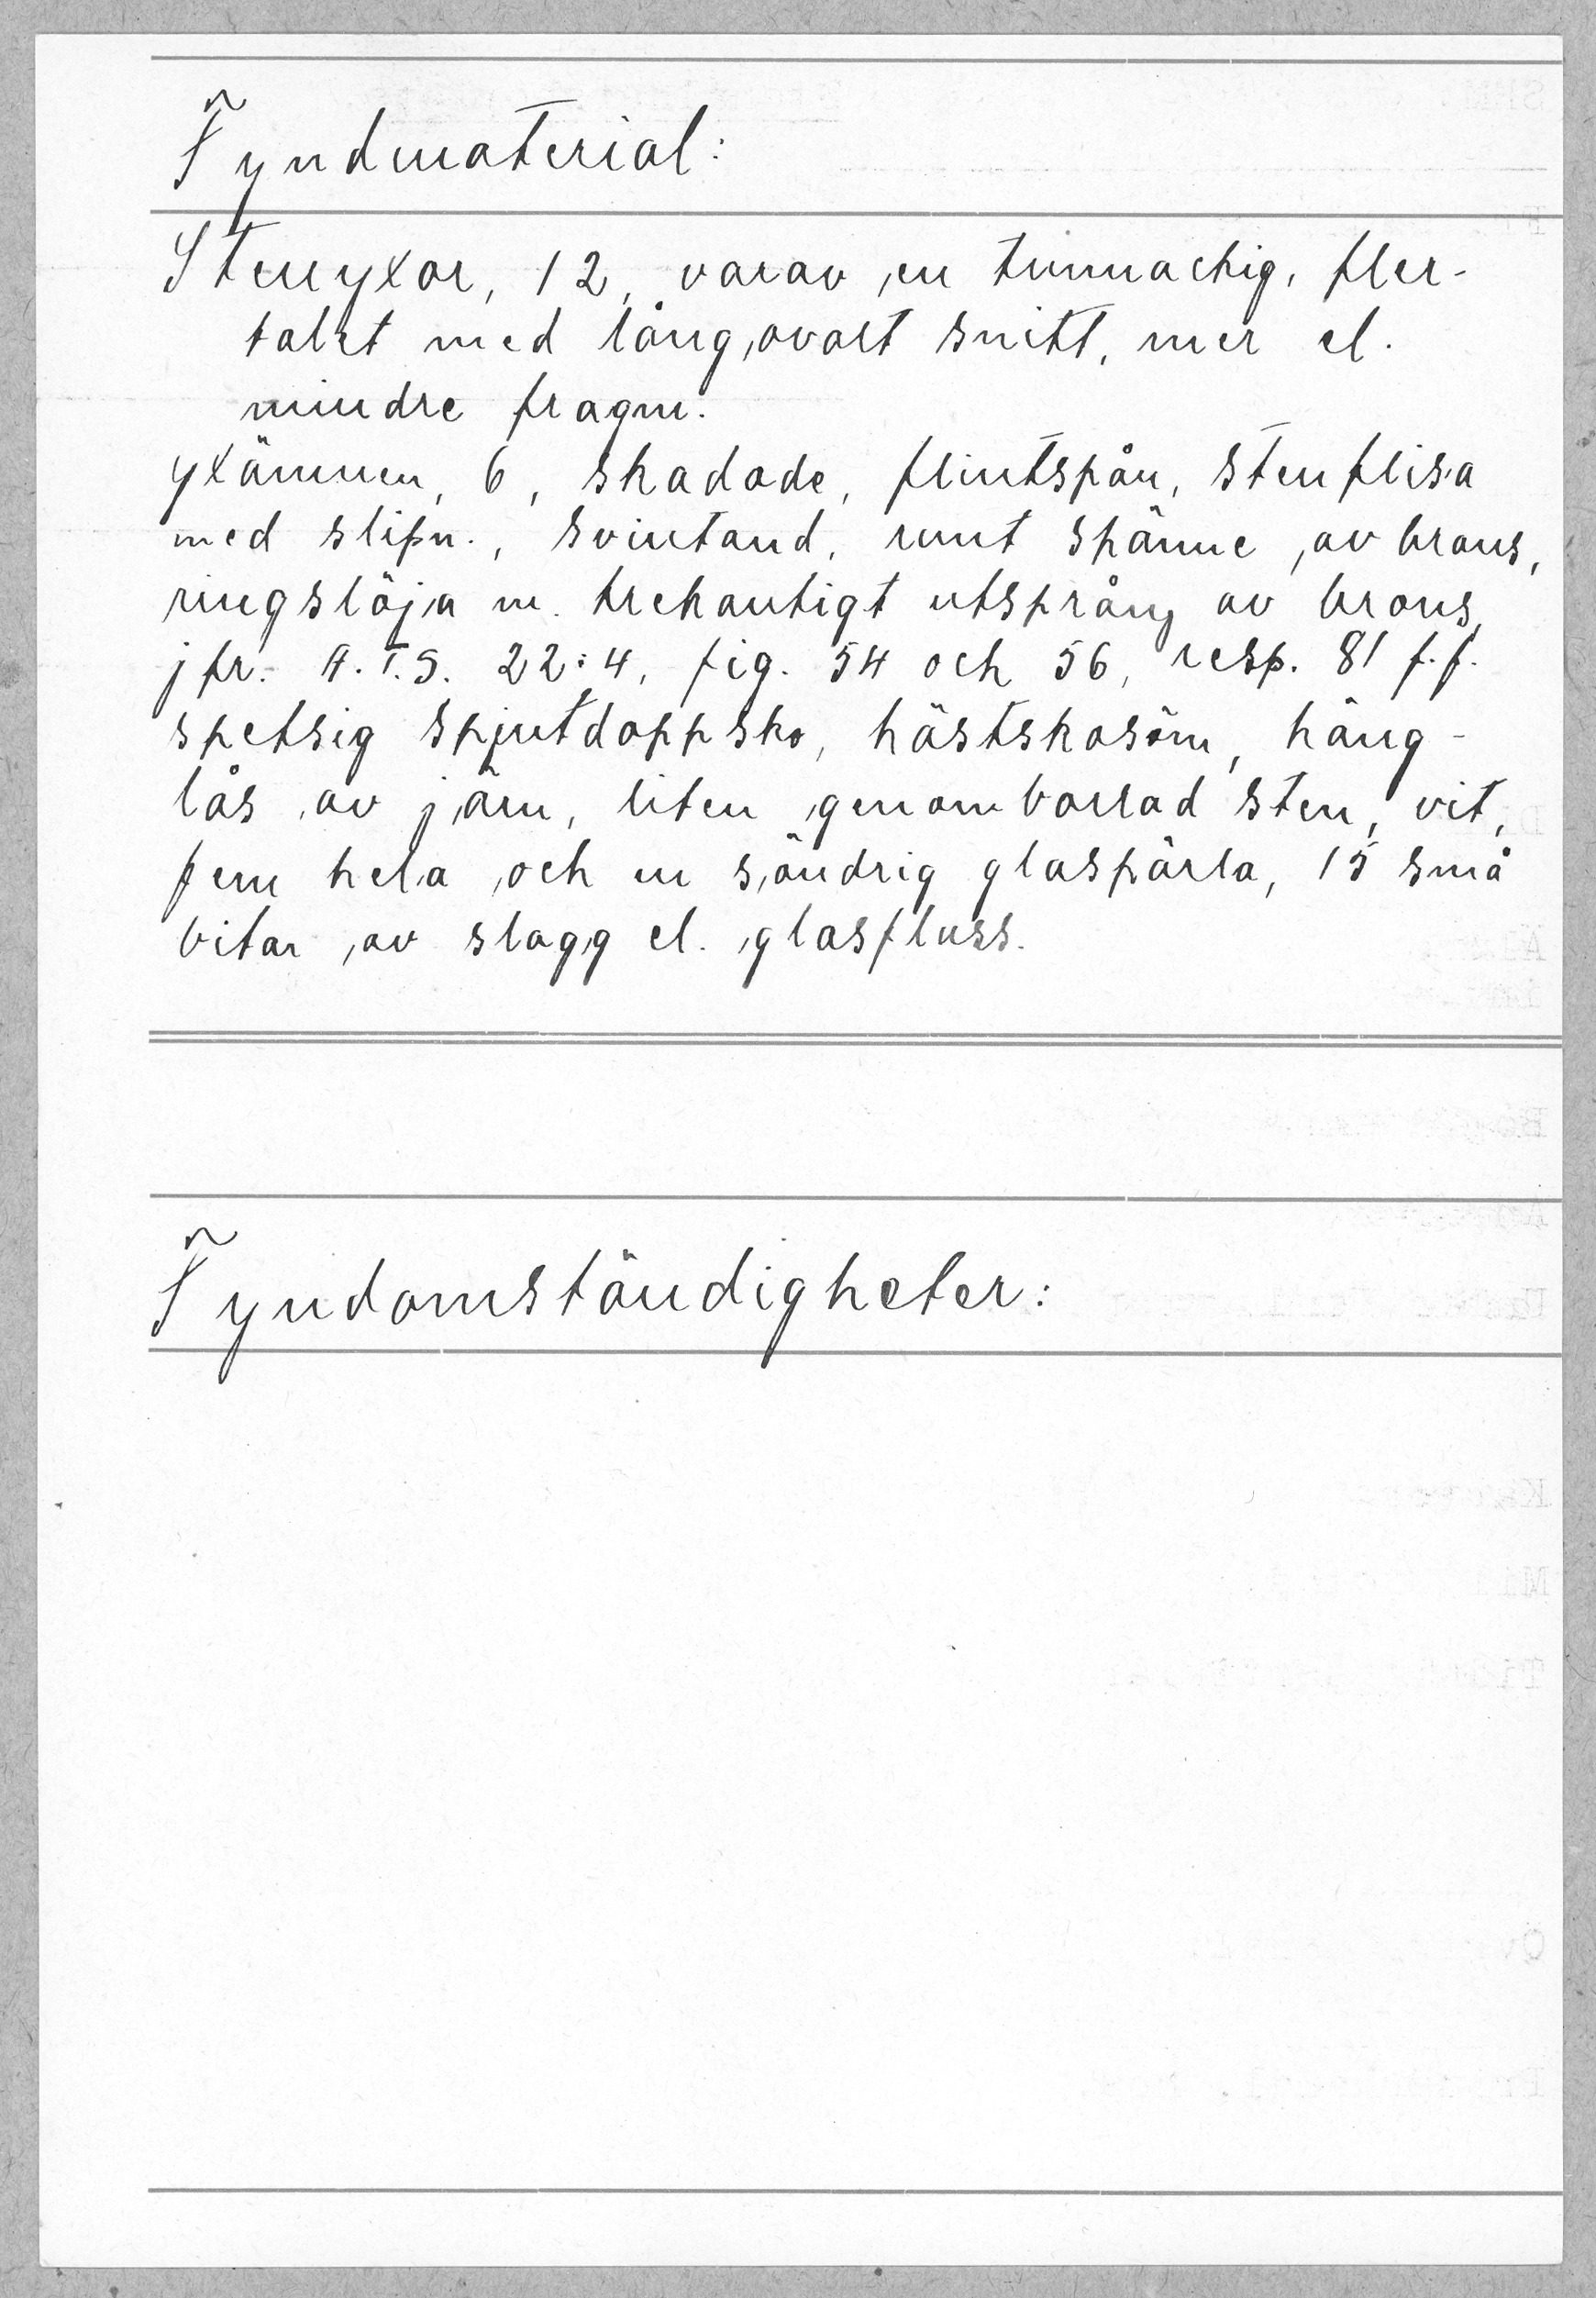 Fyndmaterial:
Stenyxor, 12, varav en tunnackig, fler-
talet med långovalt snitt, mer el.
mindre fragm.
yxämnen, 6, skadade, flintspån, stenflisa
med slipn., svintand, runt spänne av brons,
ringslöja m. trekantigt utsprång av brons,
jfr. A.T.S. 22:4, fig. 54 och 56, resp. 81 f.f.
spetsig spjutdoppsko, hästskosöm, häng-
lås av järn, liten genomborrad sten, vit,
fem hela och en söndrig glaspärla, 15 små
bitar av slagg el. glasfluss.
Fyndomständigheter: